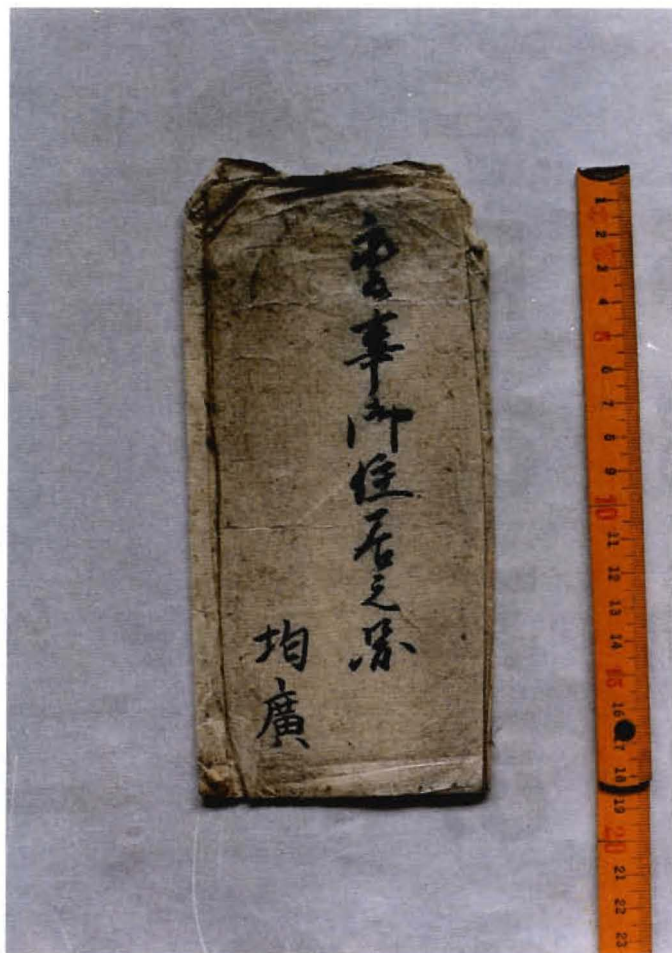 御住居之
均廣
1
2
3
4
5
6
7
8
9
10
11
12
13
14
15
16
17
18
19
20
21
22
23